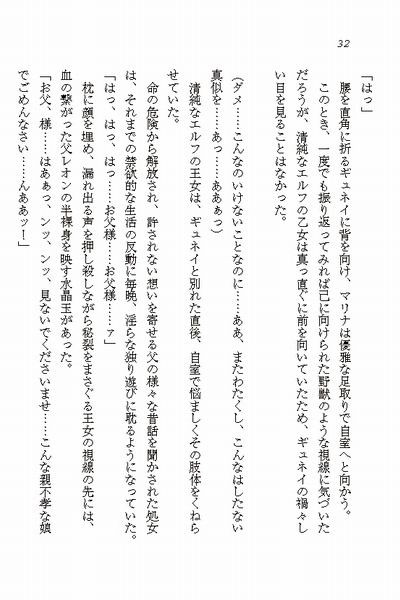 32
「はっ」
　腰を直角に折るギュネイに背を向け、マリナは優雅な足取りで自室へと向かう。
　このとき、一度でも振り返ってみれば己に向けられた野獣のような視線に気づいた
だろうが、清純なエルフの乙女は真っ直ぐに前を向いていたため、ギュネイの禍々し
い目を見ることはなかった。
（ダメ……こんなのいけないことなのに……ああ、またわたくし、こんなはしたない
真似を……あっ……ああぁっ）
　清純なエルフの王女は、ギュネイと別れた直後、自室で悩ましくその肢体をくねら
せていた。
　命の危険から解放され、許されない想いを寄せる父の様々な昔話を聞かされた処女
は、それまでの禁欲的な生活の反動に毎晩、淫らな独り遊びに耽るようになっていた。
「はっ、はっ、はっ……お父様……お父様……ァ」
　枕に顔を埋め、漏れ出る声を押し殺しながら秘裂をまさぐる王女の視線の先には、
血の繋がった父レオンの半裸身を映す水晶玉があった。
「お父、様……はあぁっ、ンッ、ンッ、見ないでくださいませ……こんな親不孝な娘
でごめんなさい……んああッー」